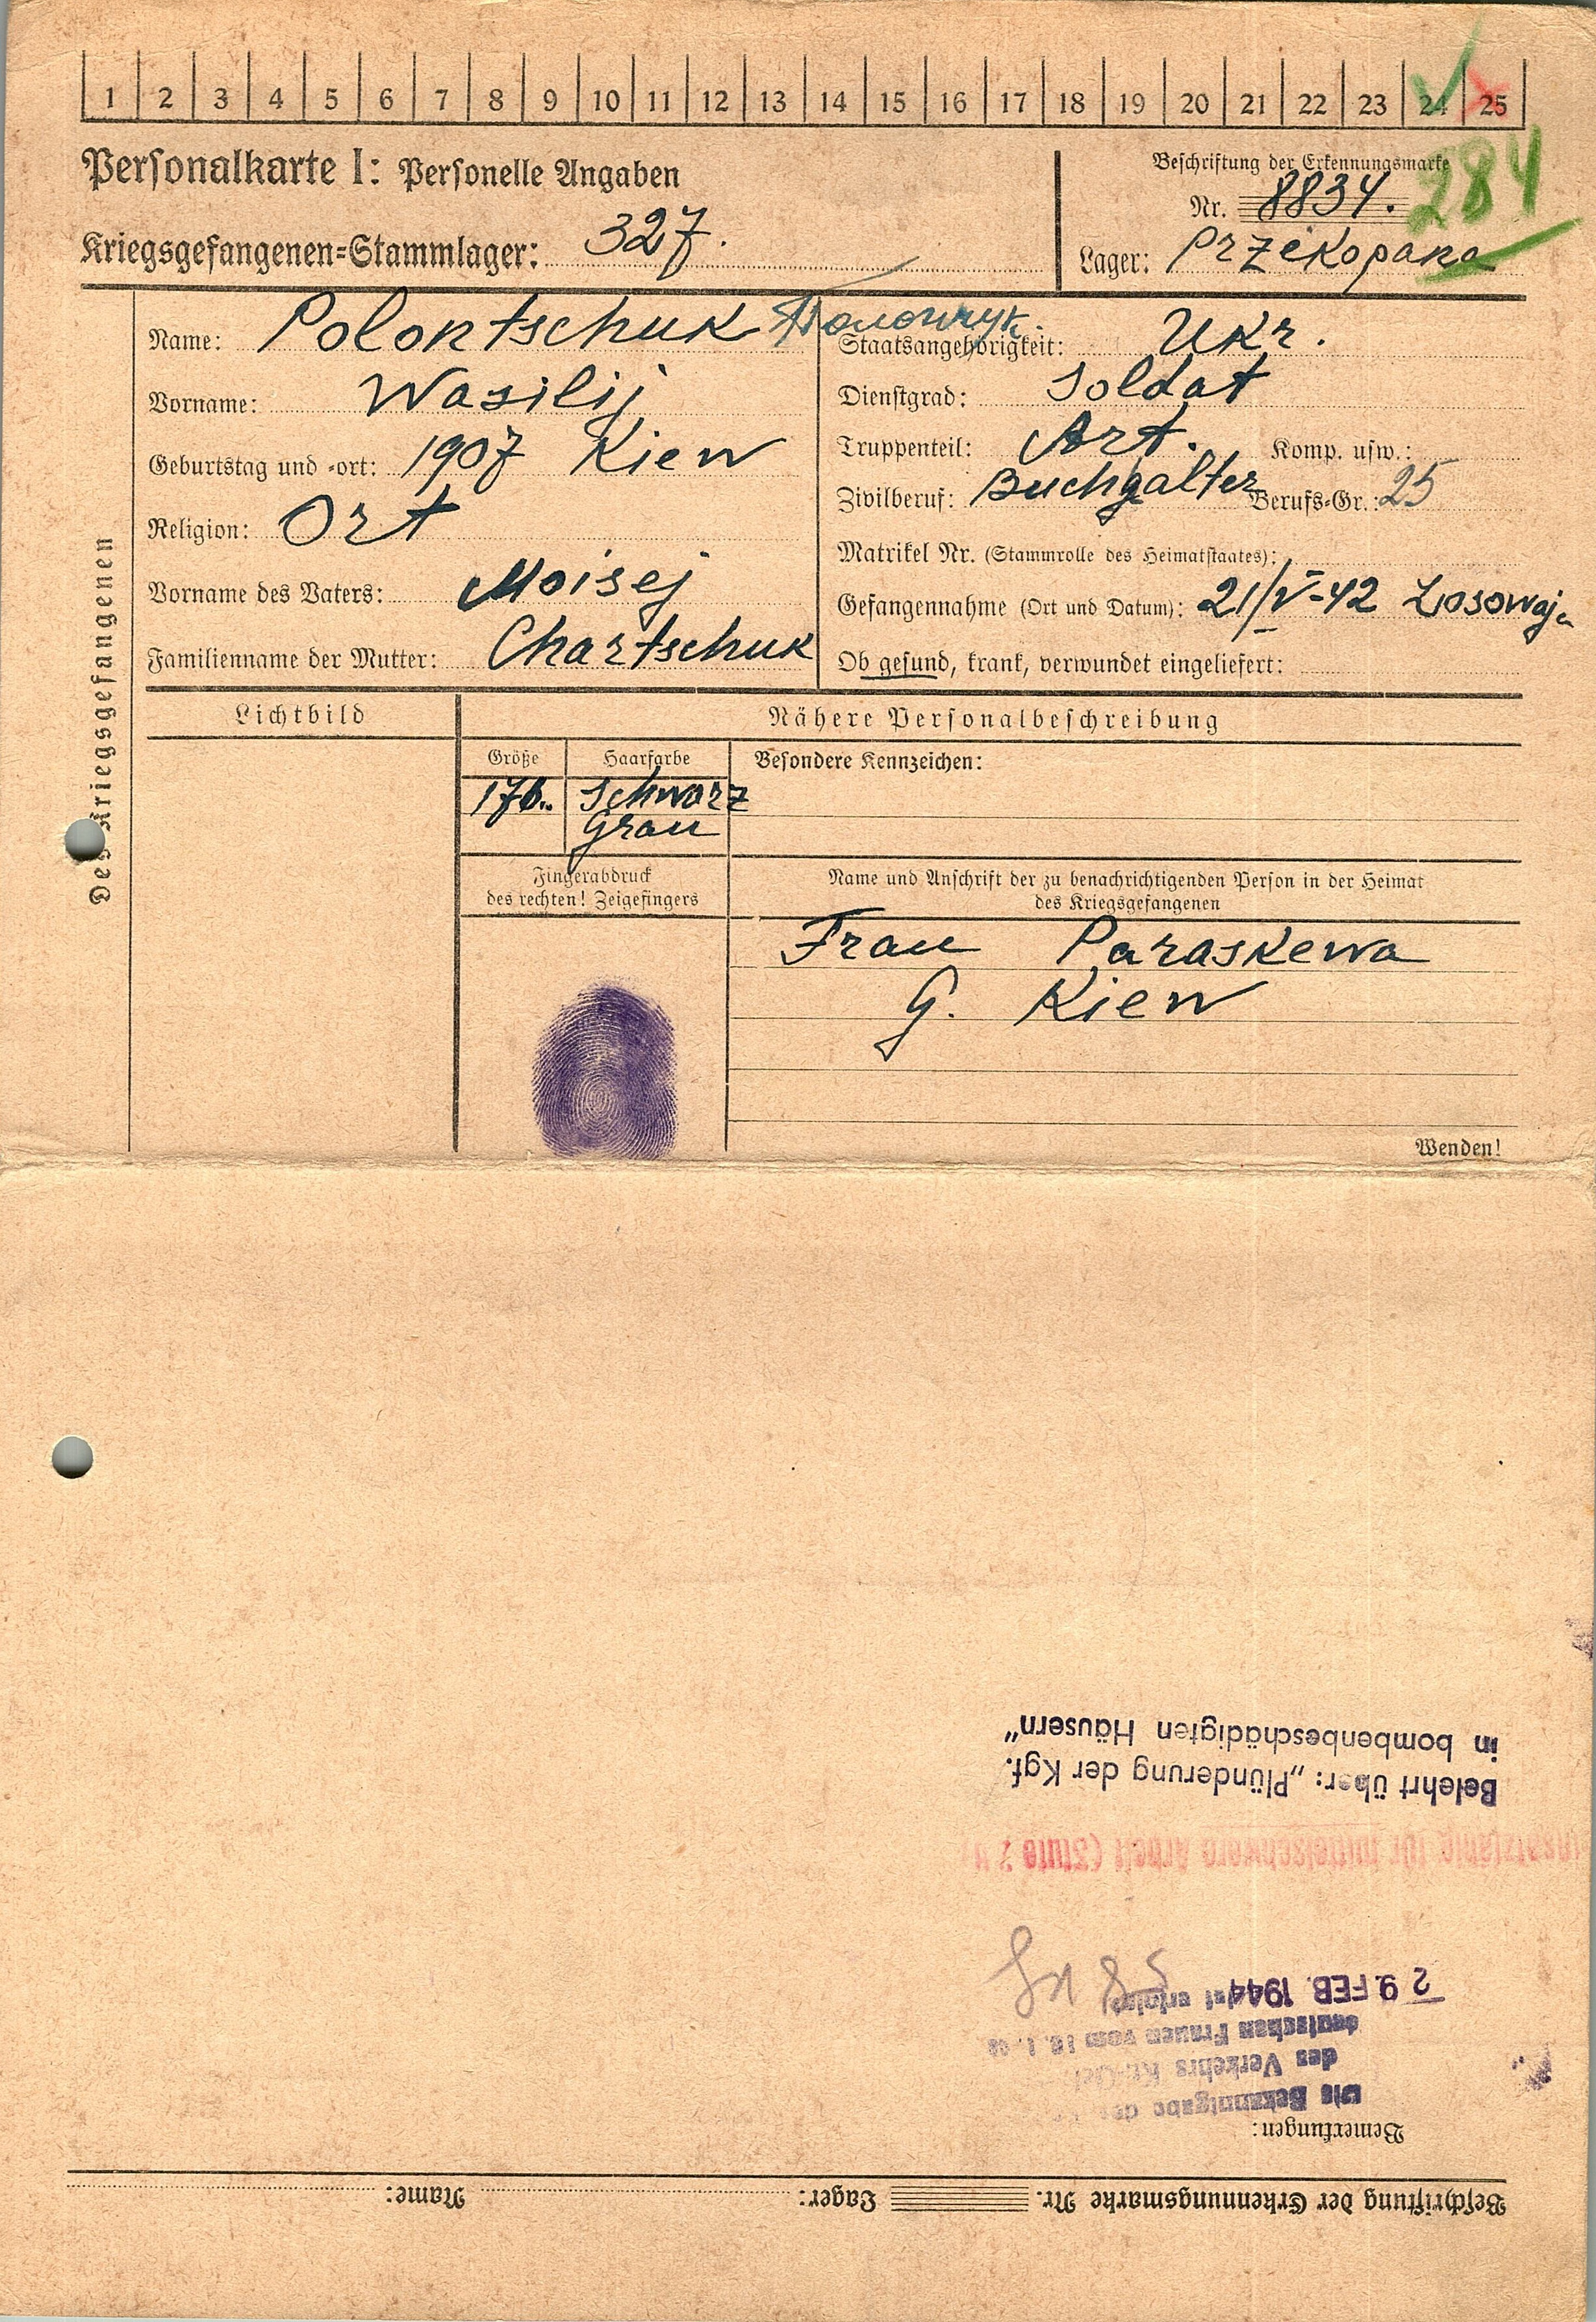 1 2 3 4 5 6 7 8 9 10 11 12 13 14 15 16 17 18 19 20 21 22 23 24 25
Personalkarte I: Personelle Angaben
Kriegsgefangenen=Stammlager: 327.
Beschriftung der Erkennungsmarke
Nr. 8834.
284
Lager: Przekopana
Des Kriegsgefangenen
Name: Polontschuk
Vorname: Wasilij
Geburtstag und =ort: 1907 Kiew
Religion: Ort
Vorname des Vaters: Moisej
Familienname der Mutter: Chartschuk
Staatsangehörigkeit: Ukr.
Dienstgrad: Soldat
Truppenteil: Art. Komp. usw.:
Zivilberuf: Buchgalter Berufs=Gr.: 25
Matrikel Nr. (Stammrolle des Heimatstaates):
Gefangennahme (Ort und Datum): 21/V-42 Losowaja
Ob gesund, krank, verwundet eingeliefert:
Lichtbild
Nähere Personalbeschreibung
Größe
176.
Haarfarbe
Schwarz
Grau
Besondere Kennzeichen:
Fingerabdruck
des rechten! Zeigefingers
Name und Anschrift der zu benachrichtigenden Person in der Heimat
des Kriegsgefangenen
Frau Paraskewa
G. Kiew
Wenden!
Beschriftung der Erkennungsmarke Nr. Lager: Name:
Bemerkungen:
Die Bekanntgabe des
des Verkehrs
deutschen Frauen vom
ist erfolgt
29. FEB. 1944
für mittelschwere Arbeit
Belehrt über: „Plünderung der Kgf.
in bombenbeschädigten Häusern"